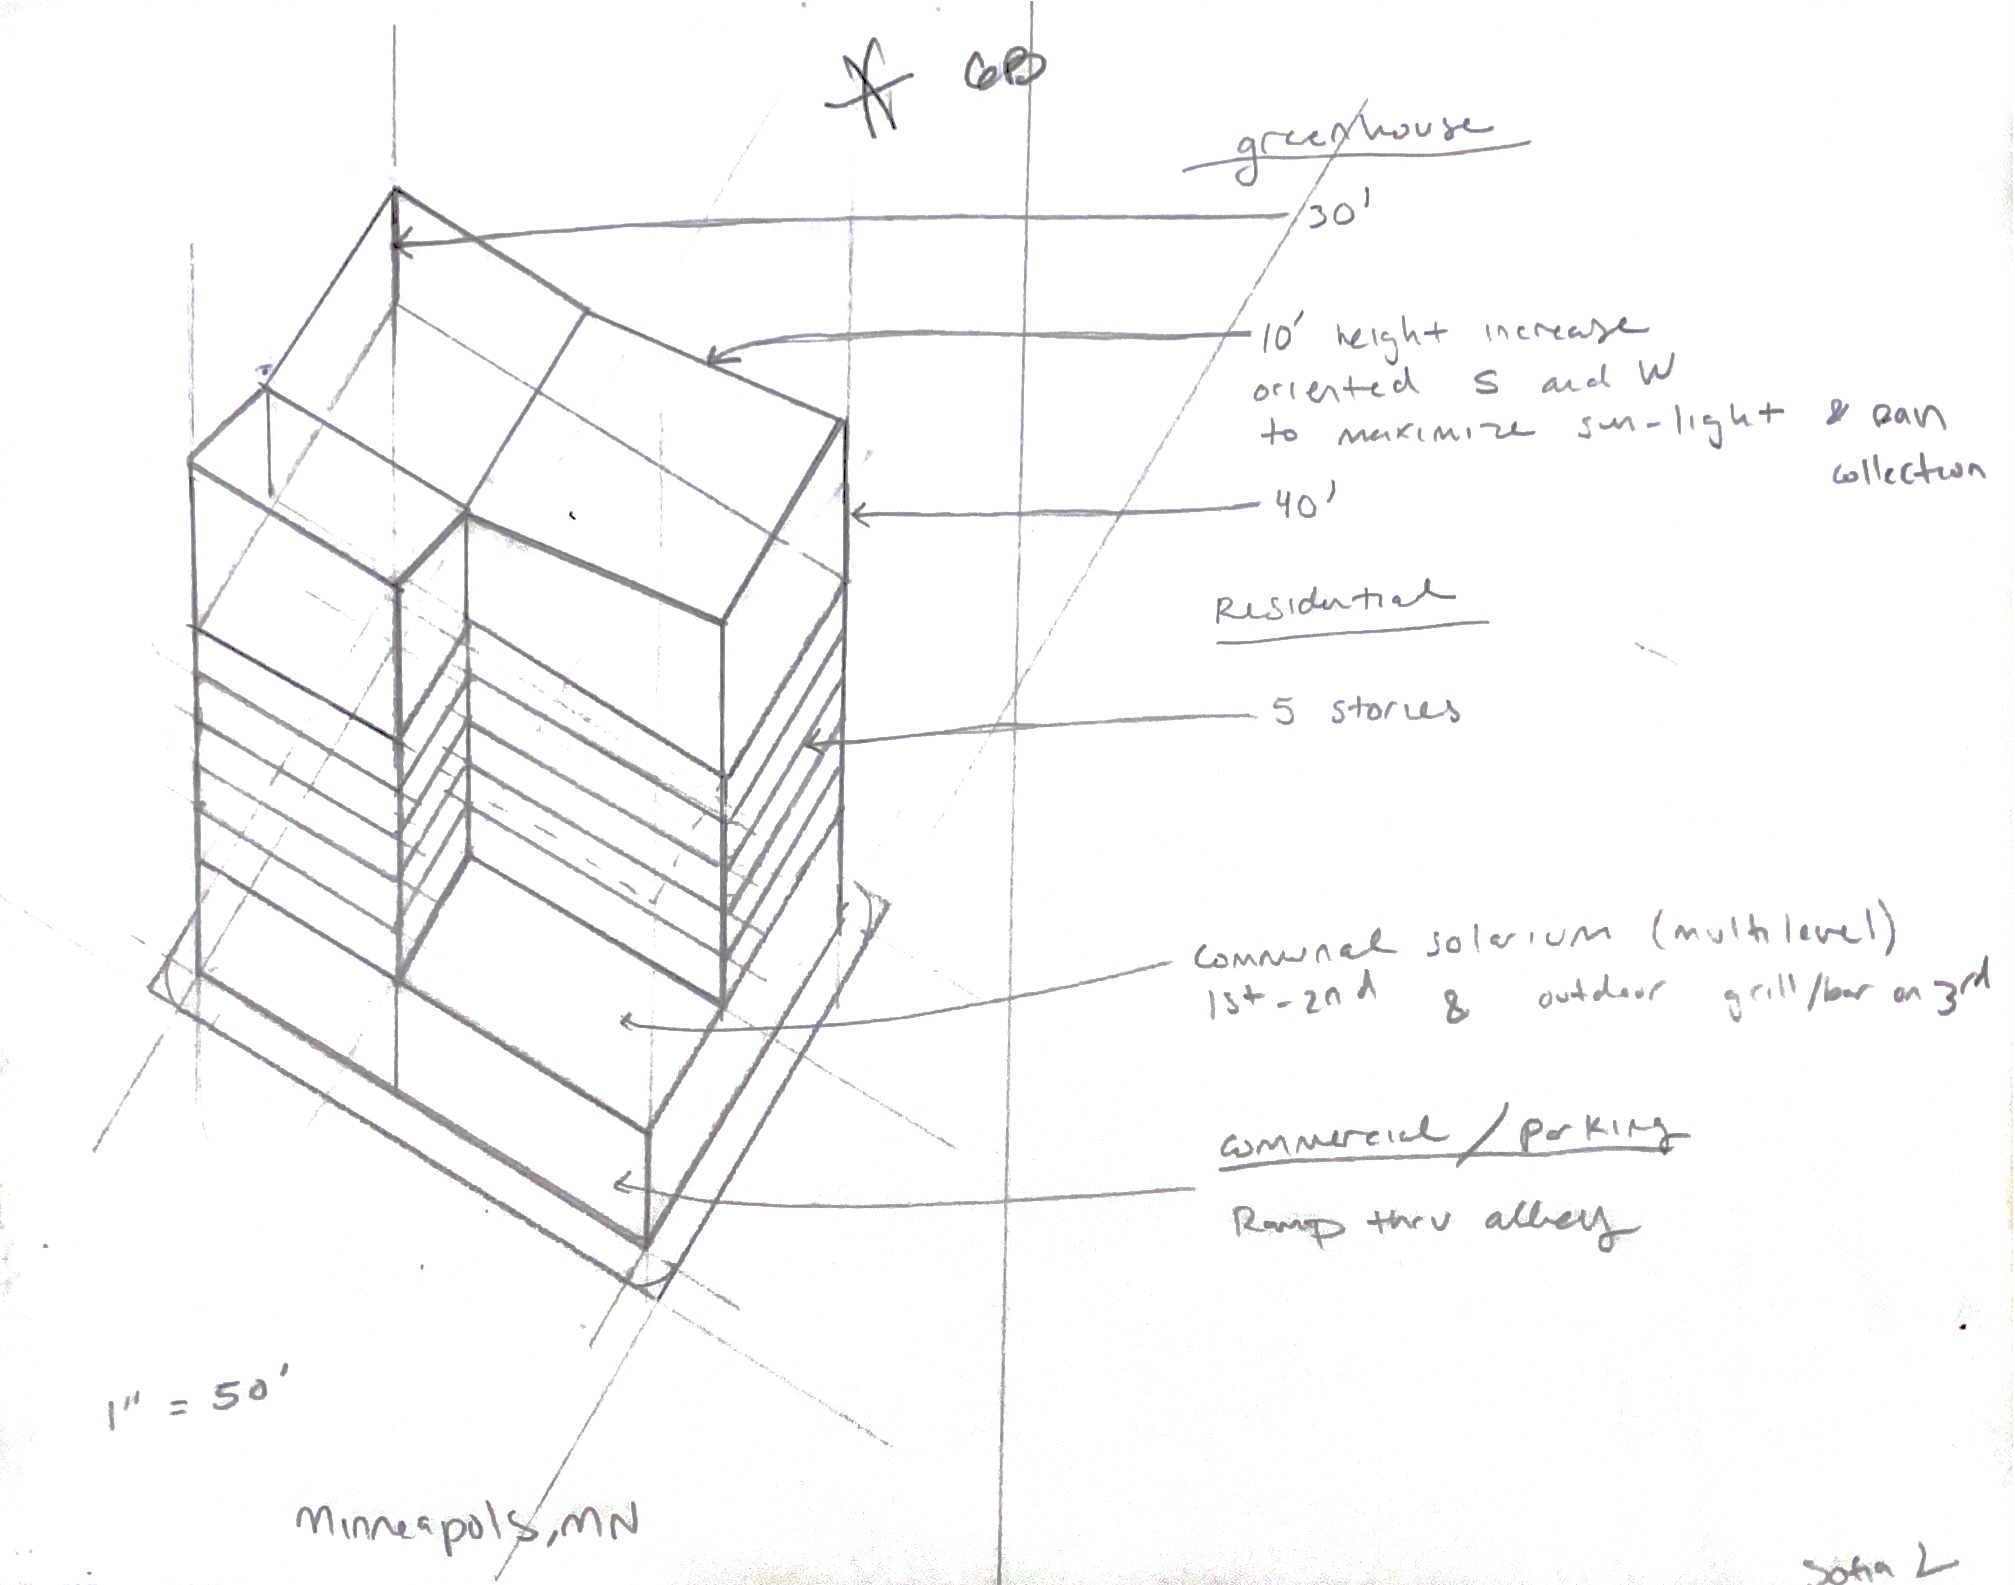 greenhouse
30'
10' height increase
oriented S and W
to maximize sun-light & rain
collection
40'
Residential
5 stories
Communal solarium (multilevel)
1st-2nd & outdoor grill/bar on 3rd
commercial / parking
Ramp thru alley
1" = 50'
Minneapolis, MN
Sofia L